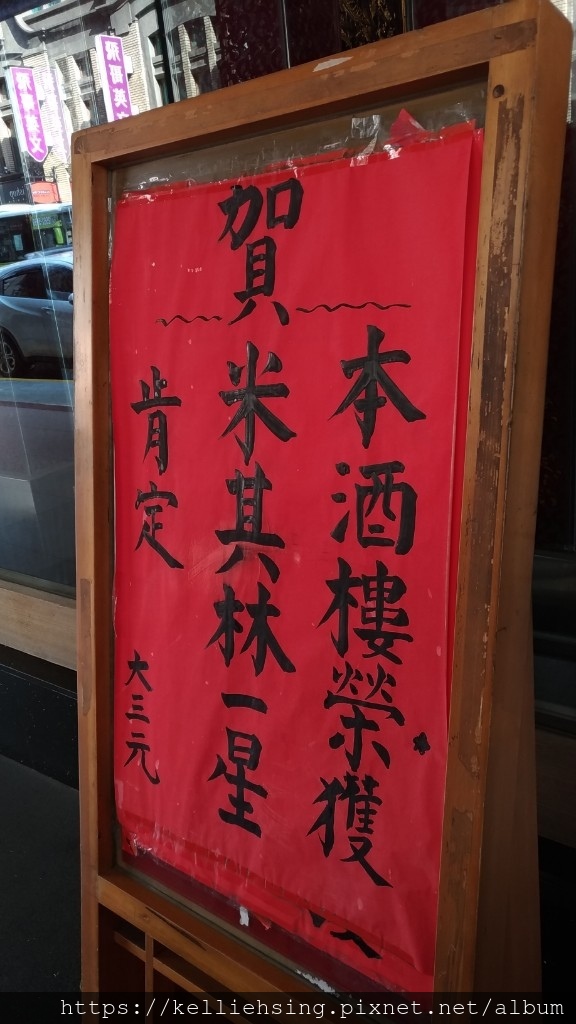 賀
本酒樓榮獲
米其林一星
肯定
大三元
飛哥英文
飛哥英文
https://kelliehsing.pixnet.net/album